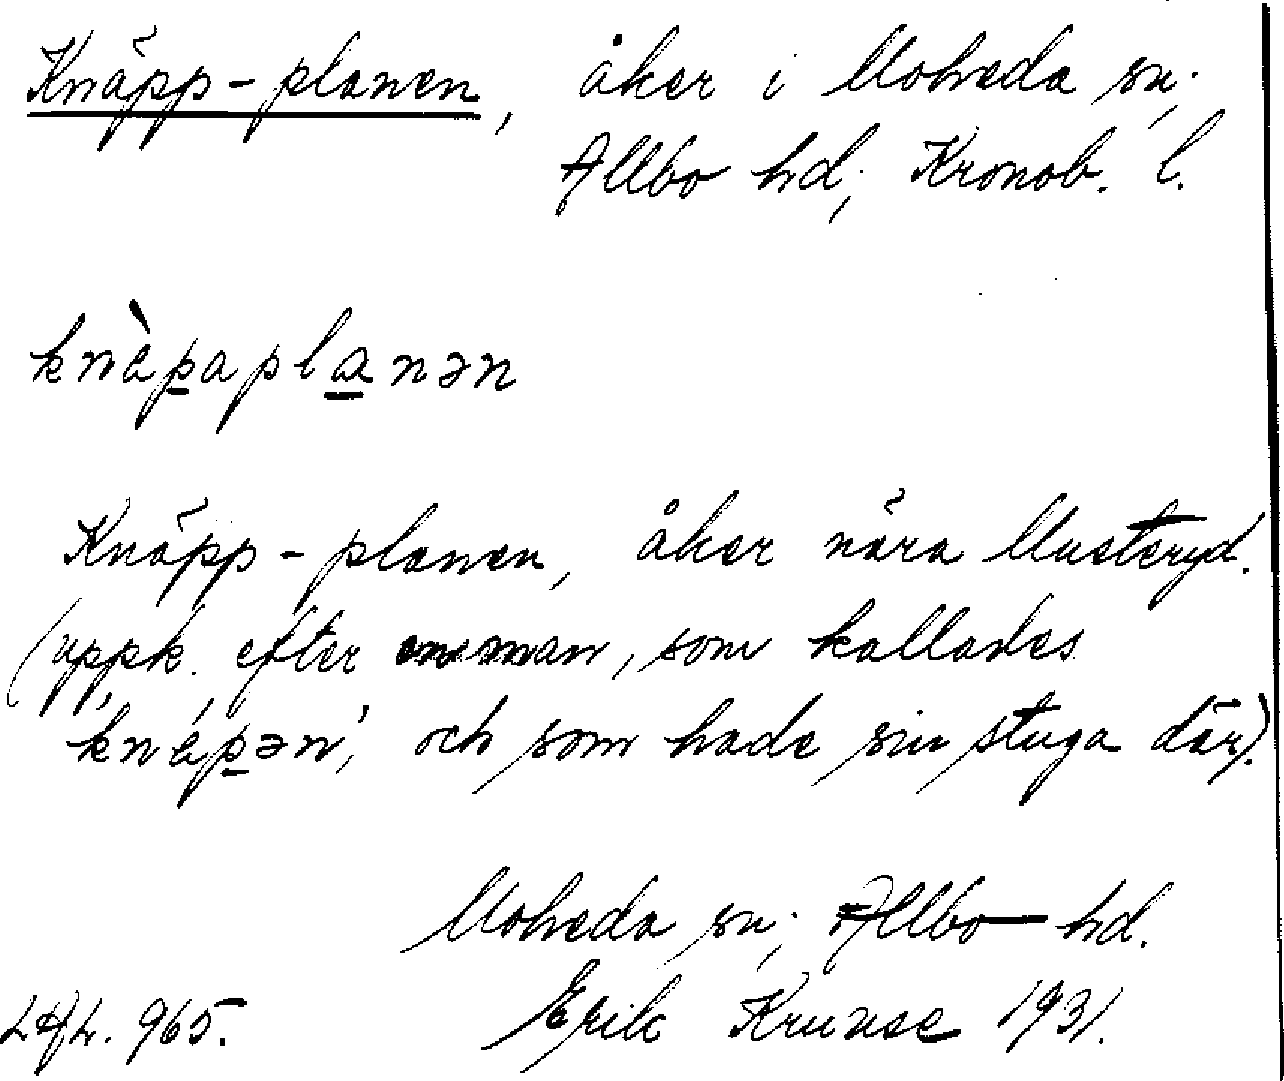 Knäpp-planen, åker i Moheda sn;
Allbo hd; Kronob. l.
knàpaplanən
Knäpp-planen, åker nära Musteryd.
(uppk. efter en man, som kallades
'knápən', och som hade sin stuga där).
Moheda sn; Allbo hd.
LAL. 965. Erik Krunse 1931.